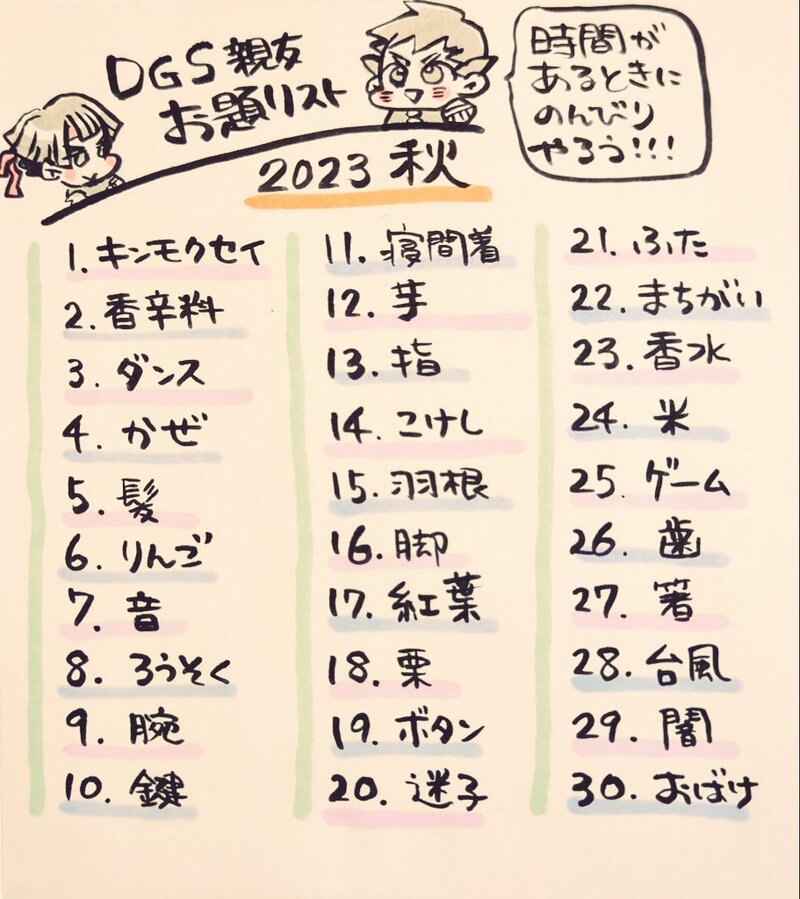 DGS 親友
お題リスト
時間が
あるときに
のんびり
やろう!!!
2023 秋
1. キンモクセイ
2. 香辛料
3. ダンス
4. かぜ
5. 髪
6. りんご
7. 音
8. ろうそく
9. 腕
10. 鍵
11. 寝間着
12. 芋
13. 指
14. こけし
15. 羽根
16. 脚
17. 紅葉
18. 栗
19. ボタン
20. 迷子
21. ふた
22. まちがい
23. 香水
24. 米
25. ゲーム
26. 歯
27. 箸
28. 台風
29. 闇
30. おばけ